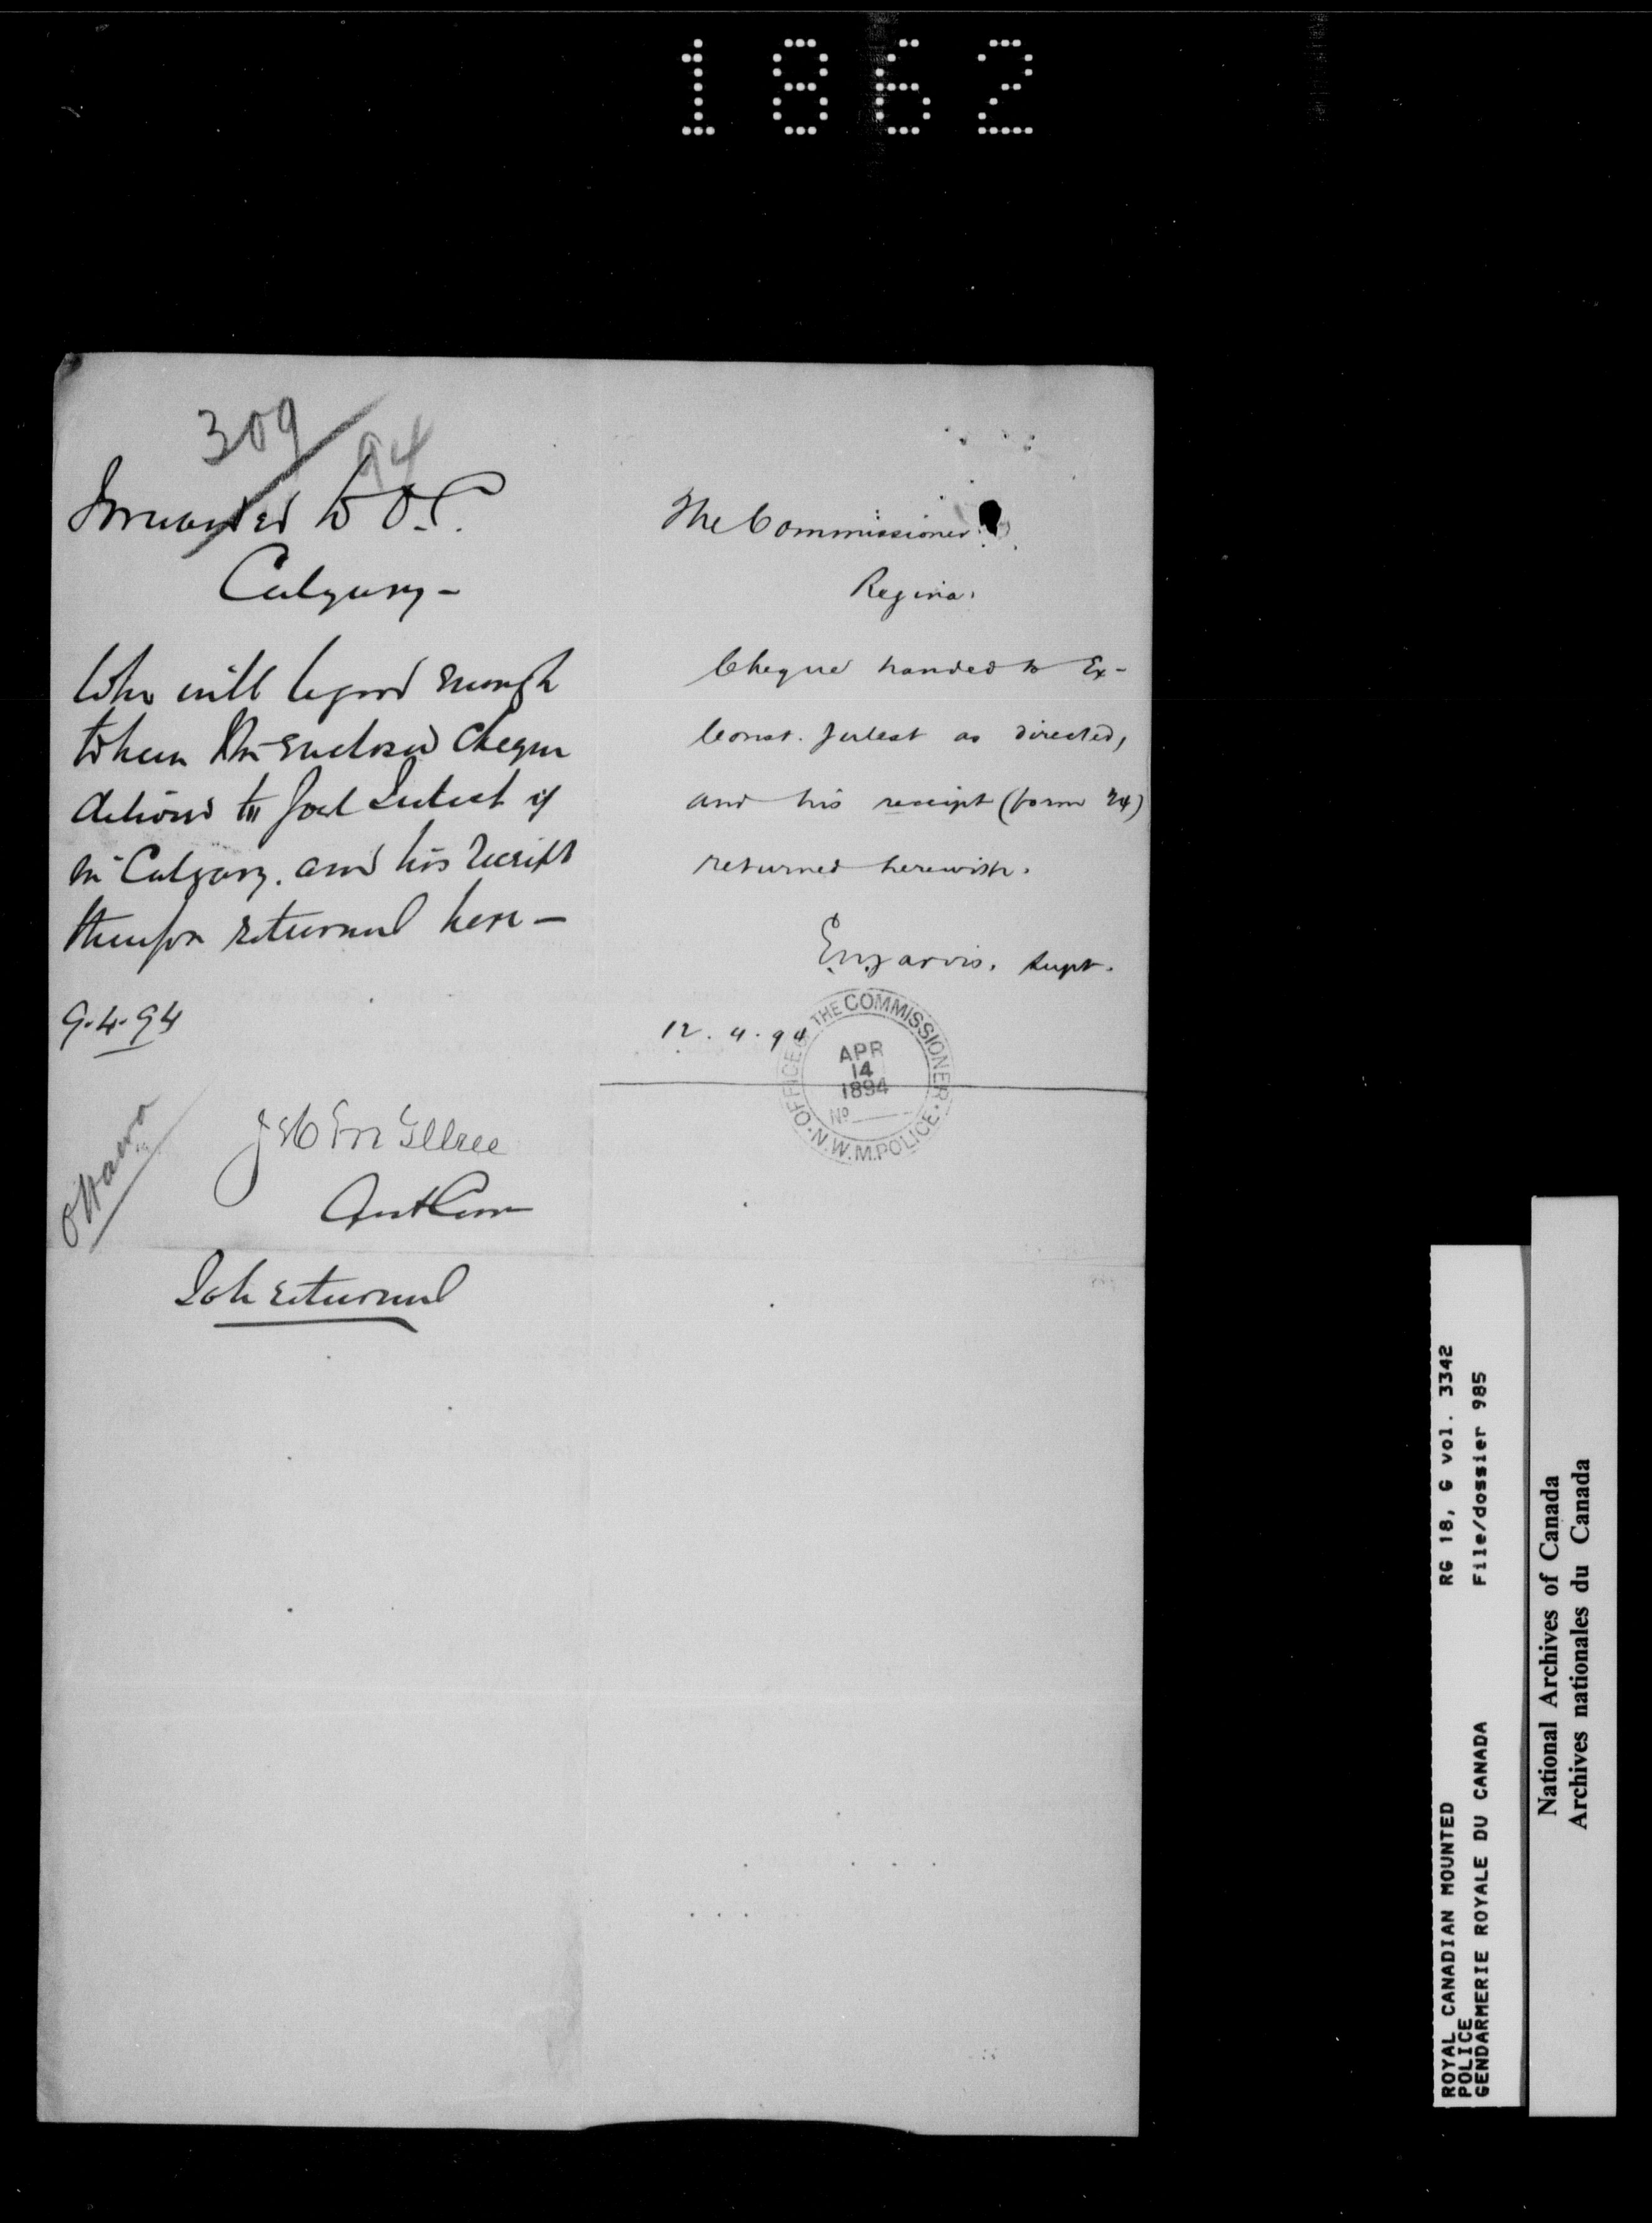 1862
309/94
Forwarded to O.C.
Calgary-
Who will be good enough
to have the enclosed cheque
delivered to if
in Calgary. and his receipt
therefor returned here-
9.4.94
Ottawa
Asst Com
To be returned
The Commissioner
Regina.
Cheque handed to Ex-
Const. as directed,
and his receipt (form 24)
returned herewith.
Jarvis. Supt.
12.4.94
OFFICE OF THE COMMISSIONER
APR
14
1894
No
N.W.M.POLICE
ROYAL CANADIAN MOUNTED RG 18, G vol. 3342
POLICE
GENDARMERIE ROYALE DU CANADA File/dossier 985
National Archives of Canada
Archives nationales du Canada